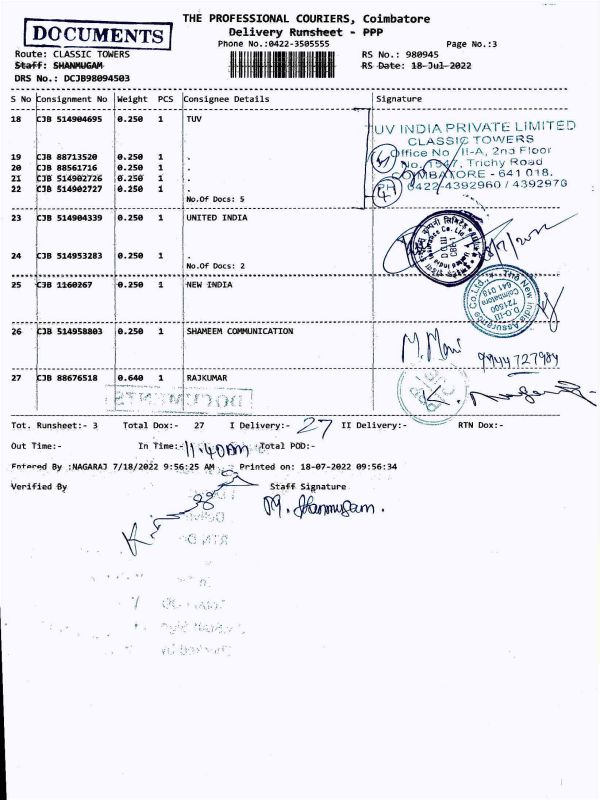 THE PROFESSIONAL COURIERS, Coimbatore
DOCUMENTS
Delivery Runsheet - PPP
Phone No.:0422-3505555
Page No.:3
Route: CLASSIC TOWERS
RS No.: 980945
Staff: SHANMUGAM
RS Date: 18-Jul-2022
DRS No.: DCJB98094503
S No Consignment No Weight PCS Consignee Details Signature
18 CJB 514904695 0.250 1 TUV
TUV INDIA PRIVATE LIMITED
CLASSIC TOWERS
Office No. II-A, 2nd Floor
19 CJB 88713520 0.250 1 .
No. 1547, Trichy Road
20 CJB 88561716 0.250 1 .
COIMBATORE - 641 018.
21 CJB 514902726 0.250 1 .
22 CJB 514902727 0.250 1 .
PH 0422-4392960 / 4392970
No.Of Docs: 5
23 CJB 514904339 0.250 1 UNITED INDIA
24 CJB 514953283 0.250 1 .
No.Of Docs: 2
25 CJB 1160267 0.250 1 NEW INDIA
The New India Assurance Co.Ltd.
D.O-III
721500
Coimbatore
641 018
26 CJB 514958803 0.250 1 SHAMEEM COMMUNICATION
M. Mani
9944727984
27 CJB 88676518 0.640 1 RAJKUMAR
DOCUMENTS
Tot. Runsheet:- 3 Total Dox:- 27 I Delivery:- 27 II Delivery:- RTN Dox:-
Out Time:- In Time:- 11.40am Total POD:-
Entered By :NAGARAJ 7/18/2022 9:56:25 AM Printed on: 18-07-2022 09:56:34
Verified By Staff Signature
M. Shanmugam.